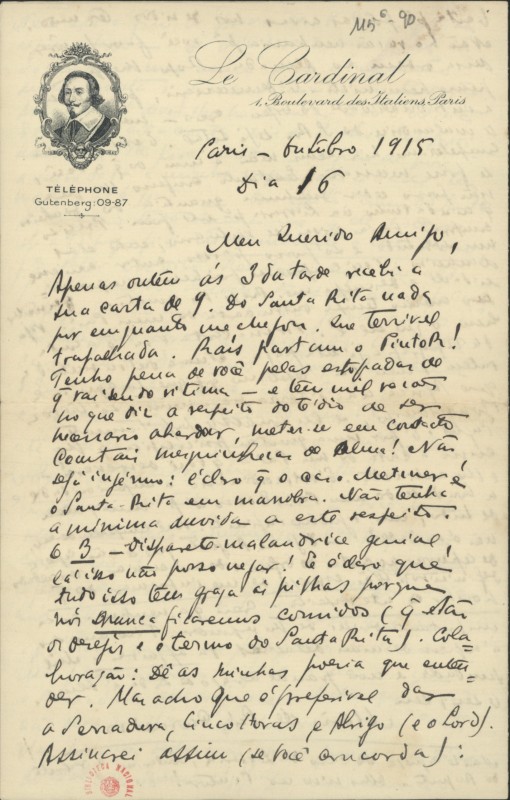 115⁶-90
Le Cardinal
1, Boulevard des Italiens, Paris
TÉLÉPHONE
Gutenberg: 09-87
Paris – Outubro 1915
Dia 16
Meu Querido Amigo,
Apenas ontem ás 3 da tarde recebi a
sua carta de 9. Do Santa Rita nada
por emquanto me chegou. Que terrivel
trapalhada. Rais partam o Pintor!
Tenho pena de você pelas estopadas de
q vai sendo vitima – e tem mil razões
no que diz a respeito do tédio de ser
necessario abordar, meter-se em contacto
com tais mesquinharias de alma! Não
seja ingénuo: é claro q o caso é
o Santa-Rita em manobra. Não tenha
a minima duvida a este respeito.
O 3 – disparate-malandrice genial,
lá isso não posso negar! E é claro que
tudo isso tem graça ás pilhas porque
nós nunca ficaremos comidos (q são
os desejos e o termo do Santa Rita). Cola-
boração: Dê as minhas poesia que enten-
der. Mas acho que é preferivel dar
a Serradura, Cinco Horas, e Abrigo (e o Lord).
Assinarei assim (se você concorda):
BIBLIOTECA NACIONAL